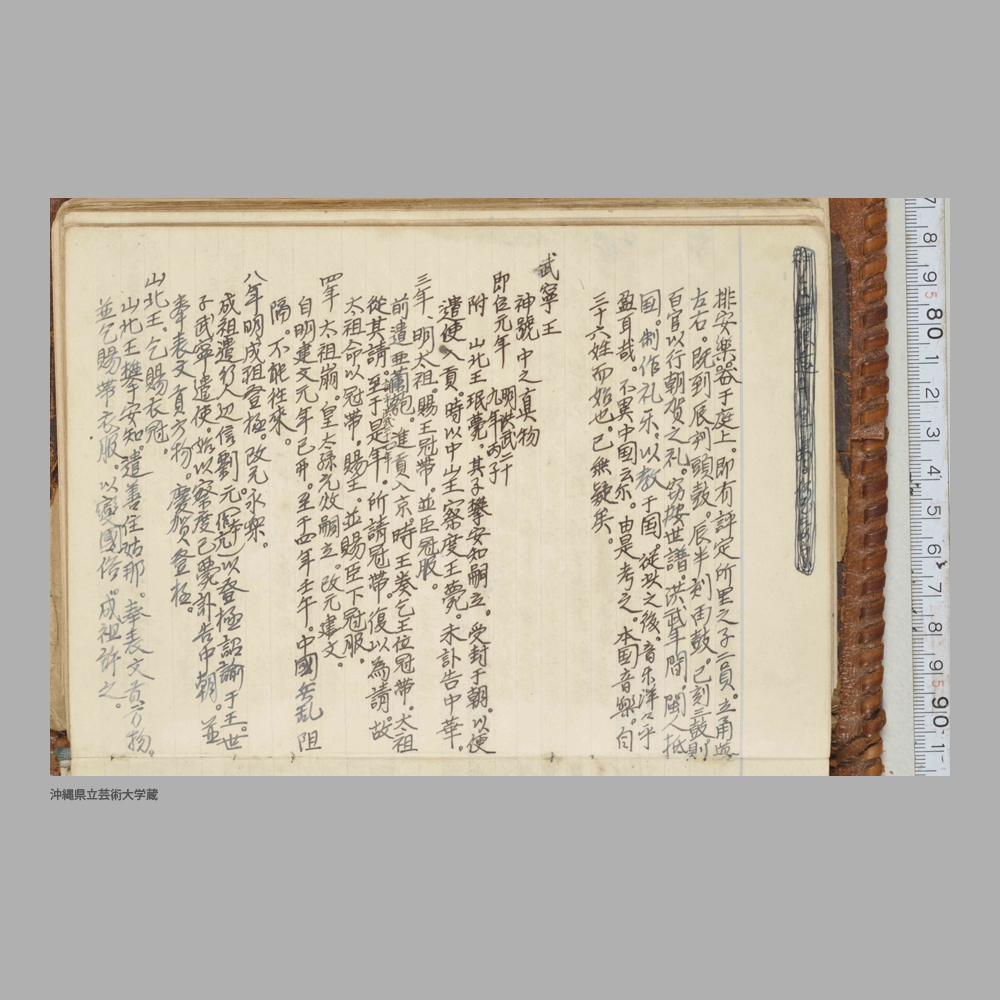 排安楽器于庭上。即有評定所里之子二員。立甬道
左右。既到辰刻頭鼓。辰半刻両鼓。已刻三鼓。則
百官以行朝賀之礼。窃按世譜。洪武年間。閩人抵
国。制作礼乐。以教于国。従此之後。音乐洋々乎
盈耳哉。不異中国云尓。由是考之。本国音楽。自
三十六姓而始也。已無疑矣。
武寧王
神號中之真物
即位元年 明洪武二十九年丙子
附 山北王珉薨。其子攀安知嗣立。受封于朝。以便
遣使入貢。時以中山王察度王薨。未訃告中華。
三年、明太祖。賜王冠帯。並臣冠服。
前遣亜蘭匏。進貢入京。時王奏乞王位冠帯。太祖
從其請。至于是年。所請冠帯。復以為請。故
太祖命以冠帯。賜王。並賜臣下冠服。
四年 太祖崩。皇太孫允炆嗣立。改元建文。
自明建文元年己卯。至于四年壬午。中國兵乱 阻
隔。不能往來。
八年明成祖登極。改元永楽。
成祖遣行人辺信劉元。以登極詔諭于王。世
子武寧遣使。始以察度已薨訃告中朝。並
奉表文貢方物。慶賀登極。
山北王。乞賜衣冠。
山北王攀安知。遣善住姑那。奉表文貢方物。
並乞賜帯衣服。以變國俗。成祖許之。
7 8 9 5 80 1 2 3 4 5 6 7 8 9 5 90 1
沖縄県立芸術大学蔵